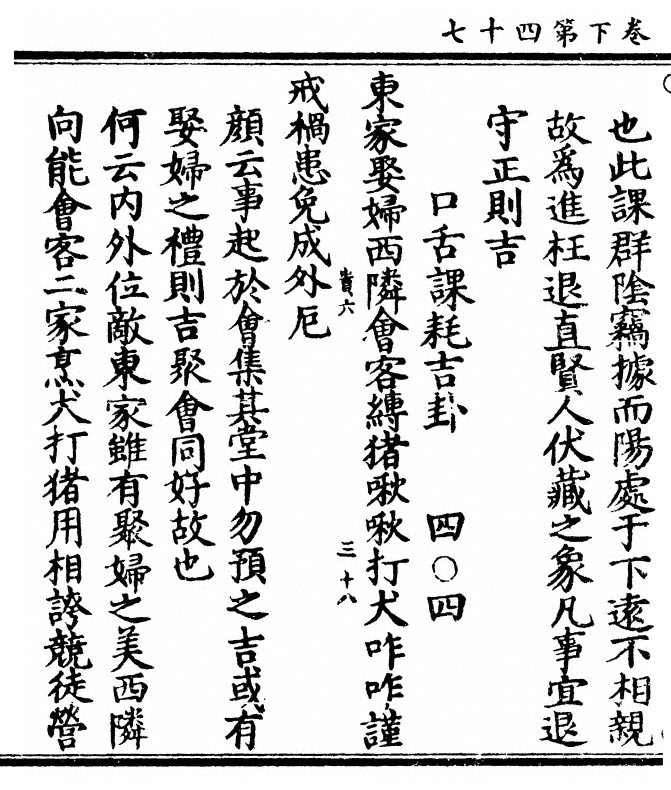 卷下第四十七
也此課群陰竊據而陽處于下遠不相親
故爲進枉退直賢人伏藏之象凡事宜退
守正則吉
口舌課耗吉卦 四〇四
東家娶婦西隣會客縛猪啾啾打犬咋咋謹
戒禍患免成外厄
貴六
三十八
顔云事起於會集其堂中勿預之吉或有
娶婦之禮則吉聚會同好故也
何云内外位敵東家雖有聚婦之美西隣
向能會客二家烹犬打猪用相誇競徒營